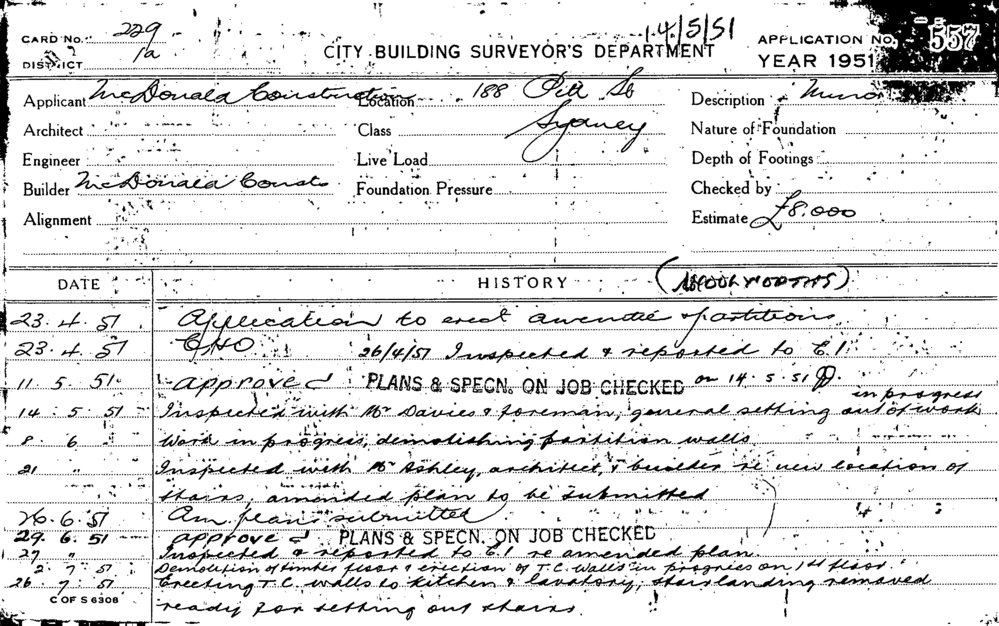 CARD No. 229
DISTRICT 1a
14/5/51
CITY BUILDING SURVEYOR'S DEPARTMENT
APPLICATION No. 557
YEAR 1951
Applicant McDonald Construction Location 188 Pitt St Description
Architect Class Sydney Nature of Foundation
Engineer Live Load Depth of Footings
Builder McDonald Consts Foundation Pressure Checked by
Alignment Estimate £8.000
DATE HISTORY (WOOLWORTHS)
23.4.51 Application to erect partitions
23.4.51 CHO 26/4/51 Inspected & reported to C.I.
11.5.51 approved PLANS & SPECN. ON JOB CHECKED on 14.5.51
14.5.51 Inspected with Mr Davies & foreman, general setting out of work in progress
8 6 Work in progress, demolishing partition walls
21 " Inspected with Mr Ashley, architect, & builder re new location of
stairs, amended plan to be submitted
26.6.51 Am plans submitted
29.6.51 approved PLANS & SPECN. ON JOB CHECKED
27 " Inspected & reported to C.I re amended plan.
2 7 51 Demolition of timber floor & erection of T.C. walls in progress on 1st floor.
26 7 51 Erecting T.C. walls to kitchen & lavatory, stair landing removed
C OF S 6308
ready for setting out stairs.